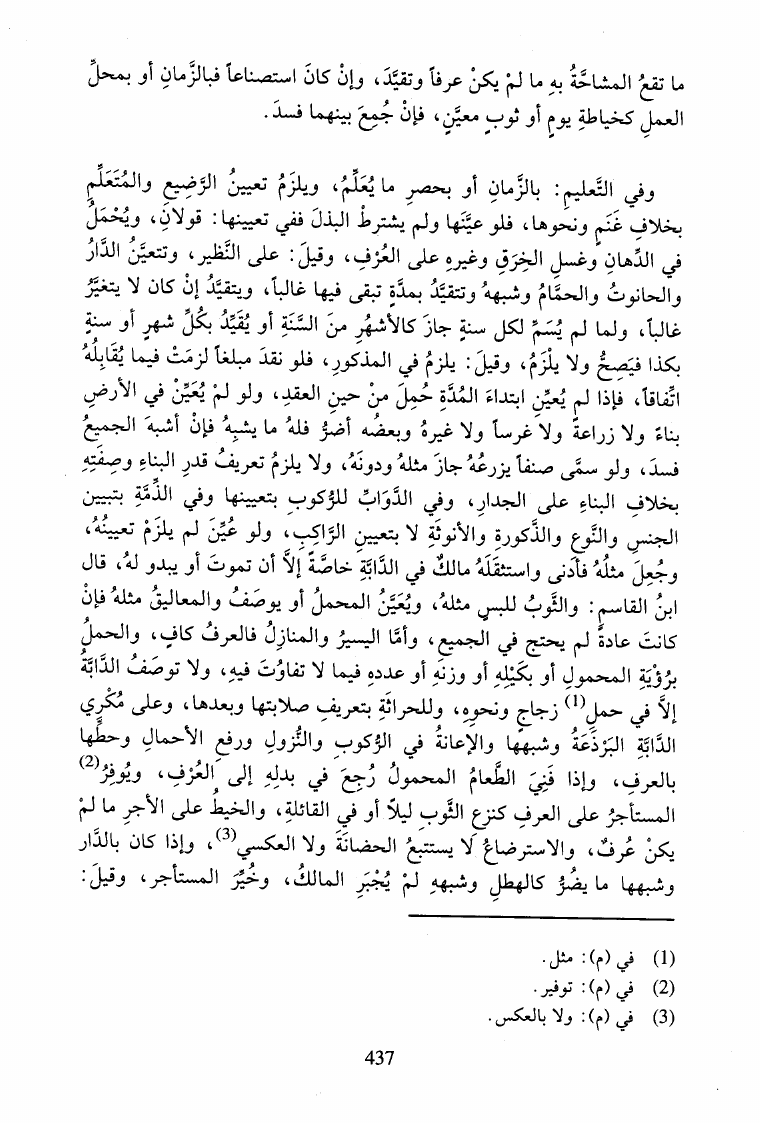 ما تقعُ المشاحَّةُ بهِ ما لمْ يكنْ عرفاً وتقيَّدَ، وإنْ كانَ استصناعاً فبالزَّمانِ أو بمحلِّ
العملِ كخياطةِ يومٍ أو ثوبٍ معيَّنٍ، فإنْ جُمِعَ بينهما فسدَ.
وفي التَّعليم: بالزَّمانِ أو بحصرِ ما يُعَلِّمُ، ويلزمُ تعيينُ الرَّضيعِ والمُتَعَلِّمِ
بخلافِ غَنَمٍ ونحوها، فلو عيَّنَها ولم يشترطْ البذلَ ففي تعيينها: قولانِ، ويُحْمَلُ
في الدِّهانِ وغسلِ الخِرَقِ وغيرِهِ على العُرْفِ، وقيلَ: على النَّظير، وتتعيَّنُ الدَّارُ
والحانوتُ والحمَّامُ وشبههُ وتتقيَّدُ بمدَّةٍ تبقى فيها غالباً، ويتقيَّدُ إنْ كان لا يتغيَّرُ
غالباً، ولما لم يُسَمِّ لكل سنةٍ جازَ كالأشهُرِ منَ السَّنَةِ أو يُقَيِّدُ بكُلِّ شهرٍ أو سنةٍ
بكذا فيَصِحُّ ولا يلْزَمُ، وقيلَ: يلزمُ في المذكورِ، فلو نقدَ مبلغاً لزمَتْ فيما يُقَابِلُهُ
اتِّفاقاً، فإذا لم يُعيِّنِ ابتداءَ المُدَّةِ حُمِلَ منْ حينِ العقدِ، ولو لمْ يُعَيِّنْ في الأرضِ
بناءً ولا زراعةً ولا غرساً ولا غيرهُ وبعضُه أضرُّ فلهُ ما يشبِهُ فإنْ أشبهَ الجميعُ
فسدَ، ولو سمَّى صنفاً يزرعُهُ جازَ مثلهُ ودونَهُ، ولا يلزمُ تعريفُ قدرِ البناءِ وصِفَتِهِ
بخلافِ البناءِ على الجدارِ، وفي الدَّوَابِّ للرُّكوبِ بتعيينها وفي الذِّمَّةِ بتبيين
الجنسِ والنَّوعِ والذُّكورةِ والأنوثَةِ لا بتعيينِ الرَّاكِبِ، ولو عُيِّنَ لم يلزَمْ تعيينُهُ،
وجُعِلَ مثلُهُ فأدنى واستثقَلَهُ مالكٌ في الدَّابَّةِ خاصَّةً إلاَّ أن تموتَ أو يبدو لهُ، قال
ابنُ القاسمِ: والثَّوبُ للبسِ مثلهُ، ويُعَيَّنُ المحملُ أو يوصَفُ والمعاليقُ مثلهُ فإنْ
كانتَ عادةً لم يحتج في الجميعِ، وأمَّا السيرُ والمنازلُ فالعرفُ كافٍ، والحملُ
برُؤْيَةِ المحمولِ أو بكَيْلِهِ أو وزنَهِ أو عددهِ فيما لا تفاوُتَ فيهِ، ولا توصَفُ الدَّابَّةُ
إلاَّ في حملِ(1) زجاجٍ ونحوِهِ، وللحراثَةِ بتعريفِ صلابتها وبعدها، وعلى مُكْرِي
الدَّابَّةِ البَرْذَعَةُ وشبهها والإعانةُ في الرُّكوبِ والنُّزولِ ورفعِ الأحمالِ وحطِّها
بالعرفِ، وإذا فَنِيَ الطَّعامُ المحمولُ رُجِعَ في بدلِهِ إلى العُرْفِ، ويُوفِرُ(2)
المستأجرُ على العرفِ كنزعِ الثَّوبِ ليلاً أو في القائلةِ، والخيطُ على الأجرِ ما لمْ
يكنْ عُرفٌ، والاسترضاعُ لا يستتبعُ الحضانَةَ ولا العكسي(3)، وإذا كان بالدَّار
وشبهها ما يضُرُّ كالهطلِ وشبههِ لمْ يُجْبَرِ المالكُ، وخُيِّرَ المستأجر، وقيلَ:
(1) في (م): مثل.
(2) في (م): توفير.
(3) في (م): ولا بالعكس.
437